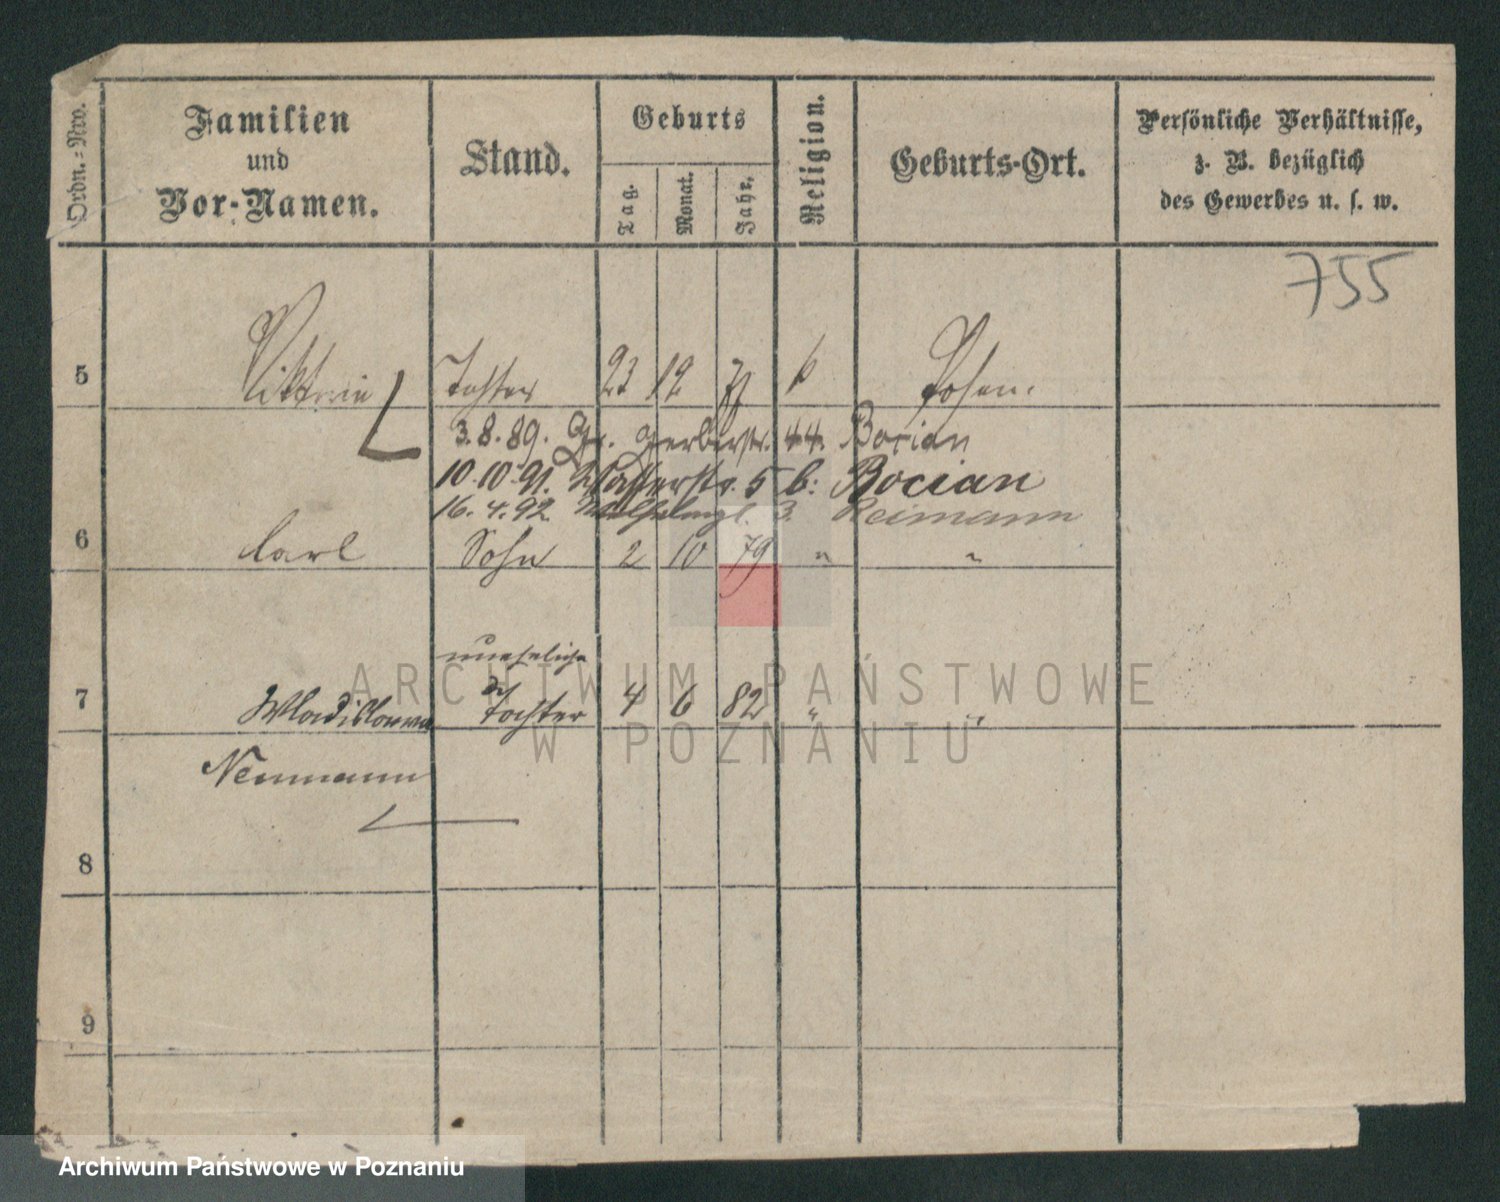 Ordn.=Nro.
Familien
und
Vor-Namen.
Stand.
Geburts
Tag.
Monat.
Jahr.
Religion.
Geburts-Ort.
Persönliche Verhältnisse,
z. B. bezüglich
des Gewerbes u. s. w.
755
5 Viktoria Tochter 23 12 k Posen.
3.8.89. Gr. Gerberstr. 44. Bocian
10.10.91. Wasserstr. 5 b: Bocian
16.4.92 3. Reimann
6 Carl Sohn 2 10 79 " "
uneheliche
7 Wladislawa d Tochter 4 6 82 " "
Neumann
8
9
ARCHIWUM PAŃSTWOWE
W POZNANIU
Archiwum Państwowe w Poznaniu